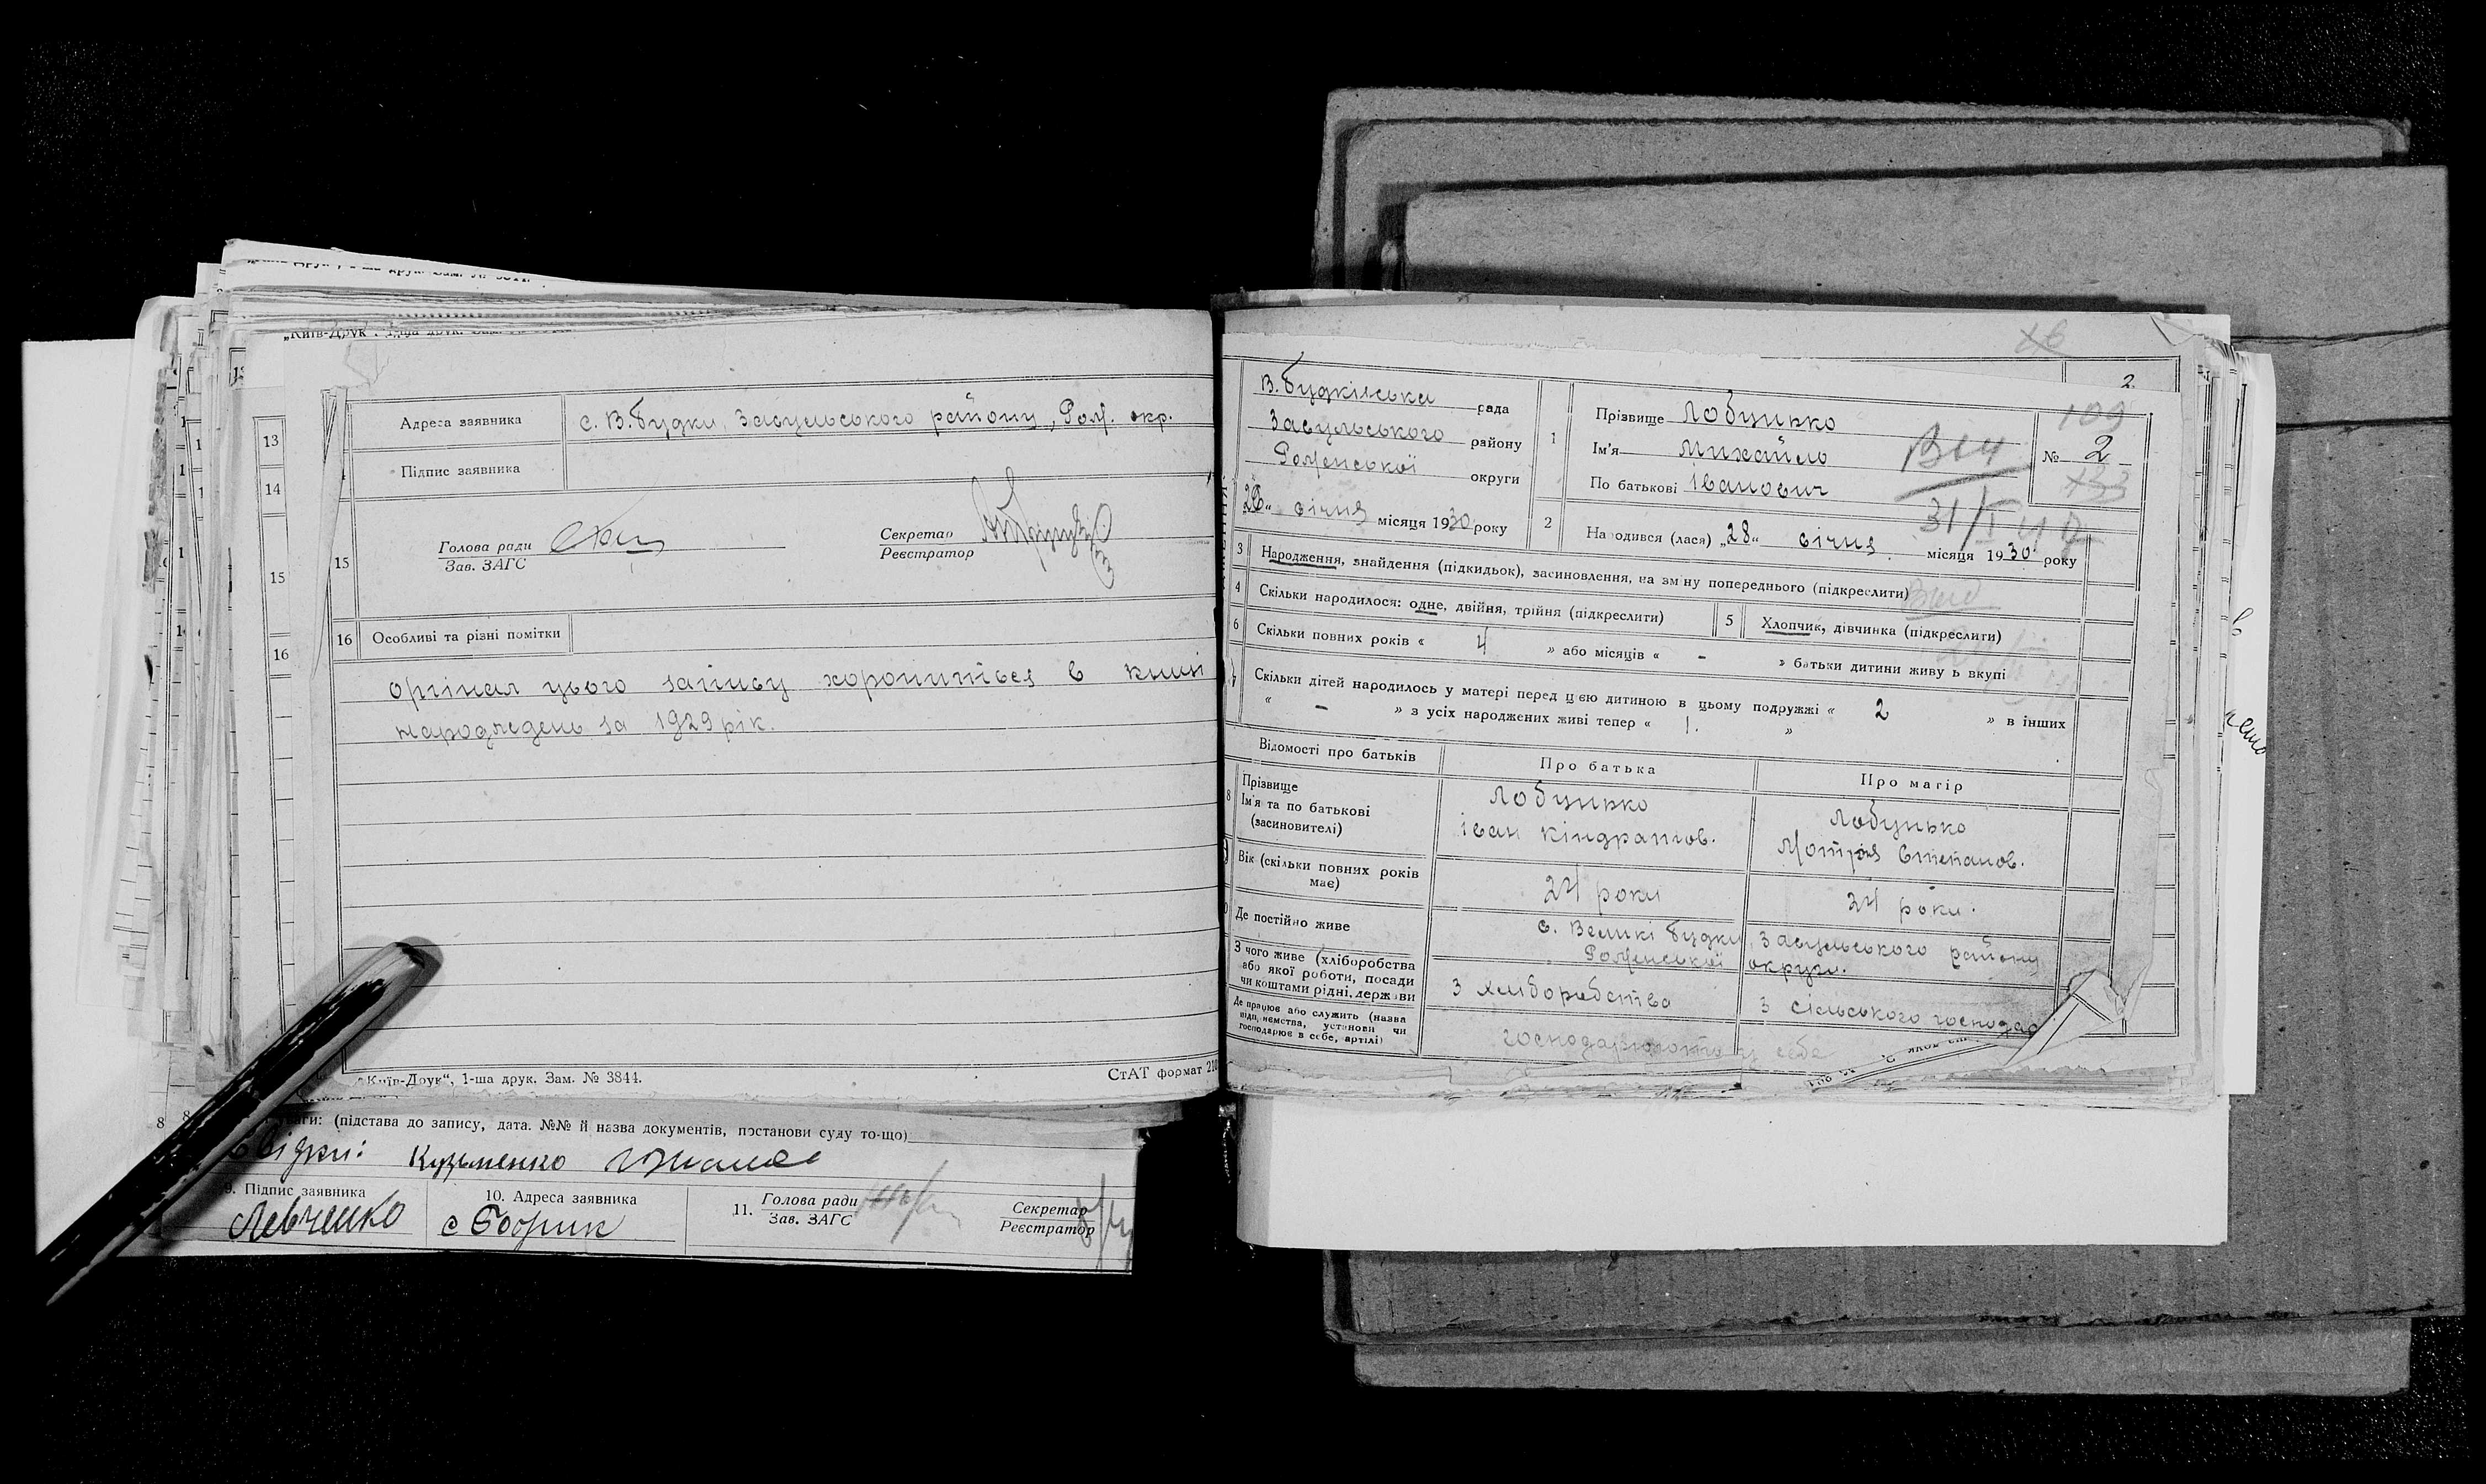 „Київ-Друк", 1-ша друк. Зам. №
13
14
15
16
Адреса заявника с. В. Будки, Засульського району, Ром. окр.
Підпис заявника
15
Голова ради
Зав. ЗАГС
Секретар
Реєстратор
16 Особливі та різні помітки
орігінал цього запису хоронится в книзі
народжень за 1929 рік.
„Київ-Друк“, 1-ша друк. Зам. № 3844.
СтАТ формат 210
8
8
(підстава до запису, дата. №№ й назва документів, постанови суду то-що)
свідки: Кузьменко
9. Підпис заявника
Левченко
10. Адреса заявника
с Бобрик
11. Голова ради
Зав. ЗАГС
Секретар
Реєстратор
2
В. Будківська рада
Засульського району
Роменської округи
січня місяця 1930 року
1
Прізвище Лобунько
Ім'я Михайло
По батькові Іванович
109
№ 2
133
31/I
2 Народився (лася) „28“ січня місяця 1930 року
3 Народження, знайдення (підкидьок), засиновлення, на зміну попереднього (підкреслити)
4 Скільки народилося: одне, двійня, трійня (підкреслити)
5 Хлопчик, дівчинка (підкреслити)
6 Скільки повних років « 4 » або місяців « - » батьки дитини живу ь вкупі
7 Скільки дітей народилось у матері перед цією дитиною в цьому подружжі « 2 » в інших
« - » з усіх народжених живі тепер « 1. »
Відомості про батьків
Про батька
Про матір
8 Прізвище
Ім'я та по батькові
(засиновителі)
Лобунько
іван кіндратов.
Лобунько
Мотря Степанов.
9 Вік (скільки повних років
має)
24 роки
24 роки.
Де постійно живе
с. Великі Будки, Засульського району
Роменської округи.
З чого живе (хліборобства
або якої роботи, посади
чи коштами рідні, держави
З хліборобства
з сільського господар
Де працює або служить (назва
підприємства, установи чи
господарює в себе, артілі)
господарюють у себе